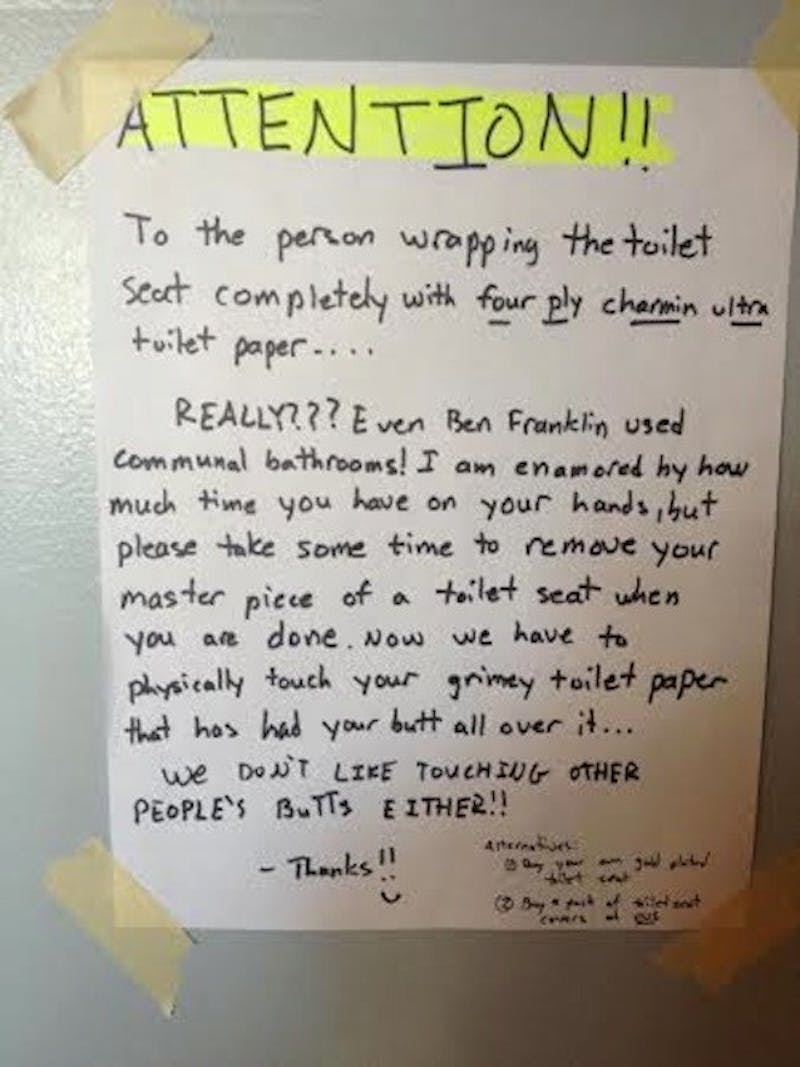 ATTENTION!!
To the person wrapping the toilet
seat completely with four ply charmin ultra
toilet paper....
REALLY??? Even Ben Franklin used
communal bathrooms! I am enamored by how
much time you have on your hands, but
please take some time to remove your
master piece of a toilet seat when
you are done. Now we have to
physically touch your grimey toilet paper
that has had your butt all over it...
WE DON'T LIKE TOUCHING OTHER
PEOPLE'S BUTTS EITHER!!
- Thanks!!
Alternatives:
① Buy your own gold plated
toilet seat
② Buy a pack of toilet seat
covers at CVS